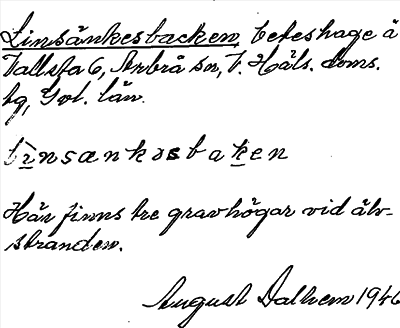 Linsänkesbacken, beteshage å
Vallsta 6, Arbrå sn, V. Häls. doms.
hg, Gvl. län.
linsænkɘsbaken
Här finns tre gravhögar vid älv-
stranden.
August Dalhem 1946